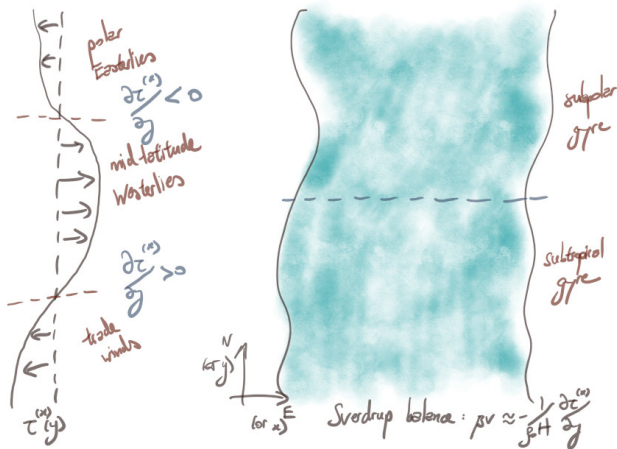 polar
Easterlies
∂τ^(x)/∂y < 0
mid-latitude
Westerlies
∂τ^(x)/∂y > 0
trade
winds
τ^(x)(y)
subpolar
gyre
subtropical
gyre
N
(or y)
E
(or x)
Sverdrup balance : βv ≈ - 1/ρ₀H ∂τ^(x)/∂y